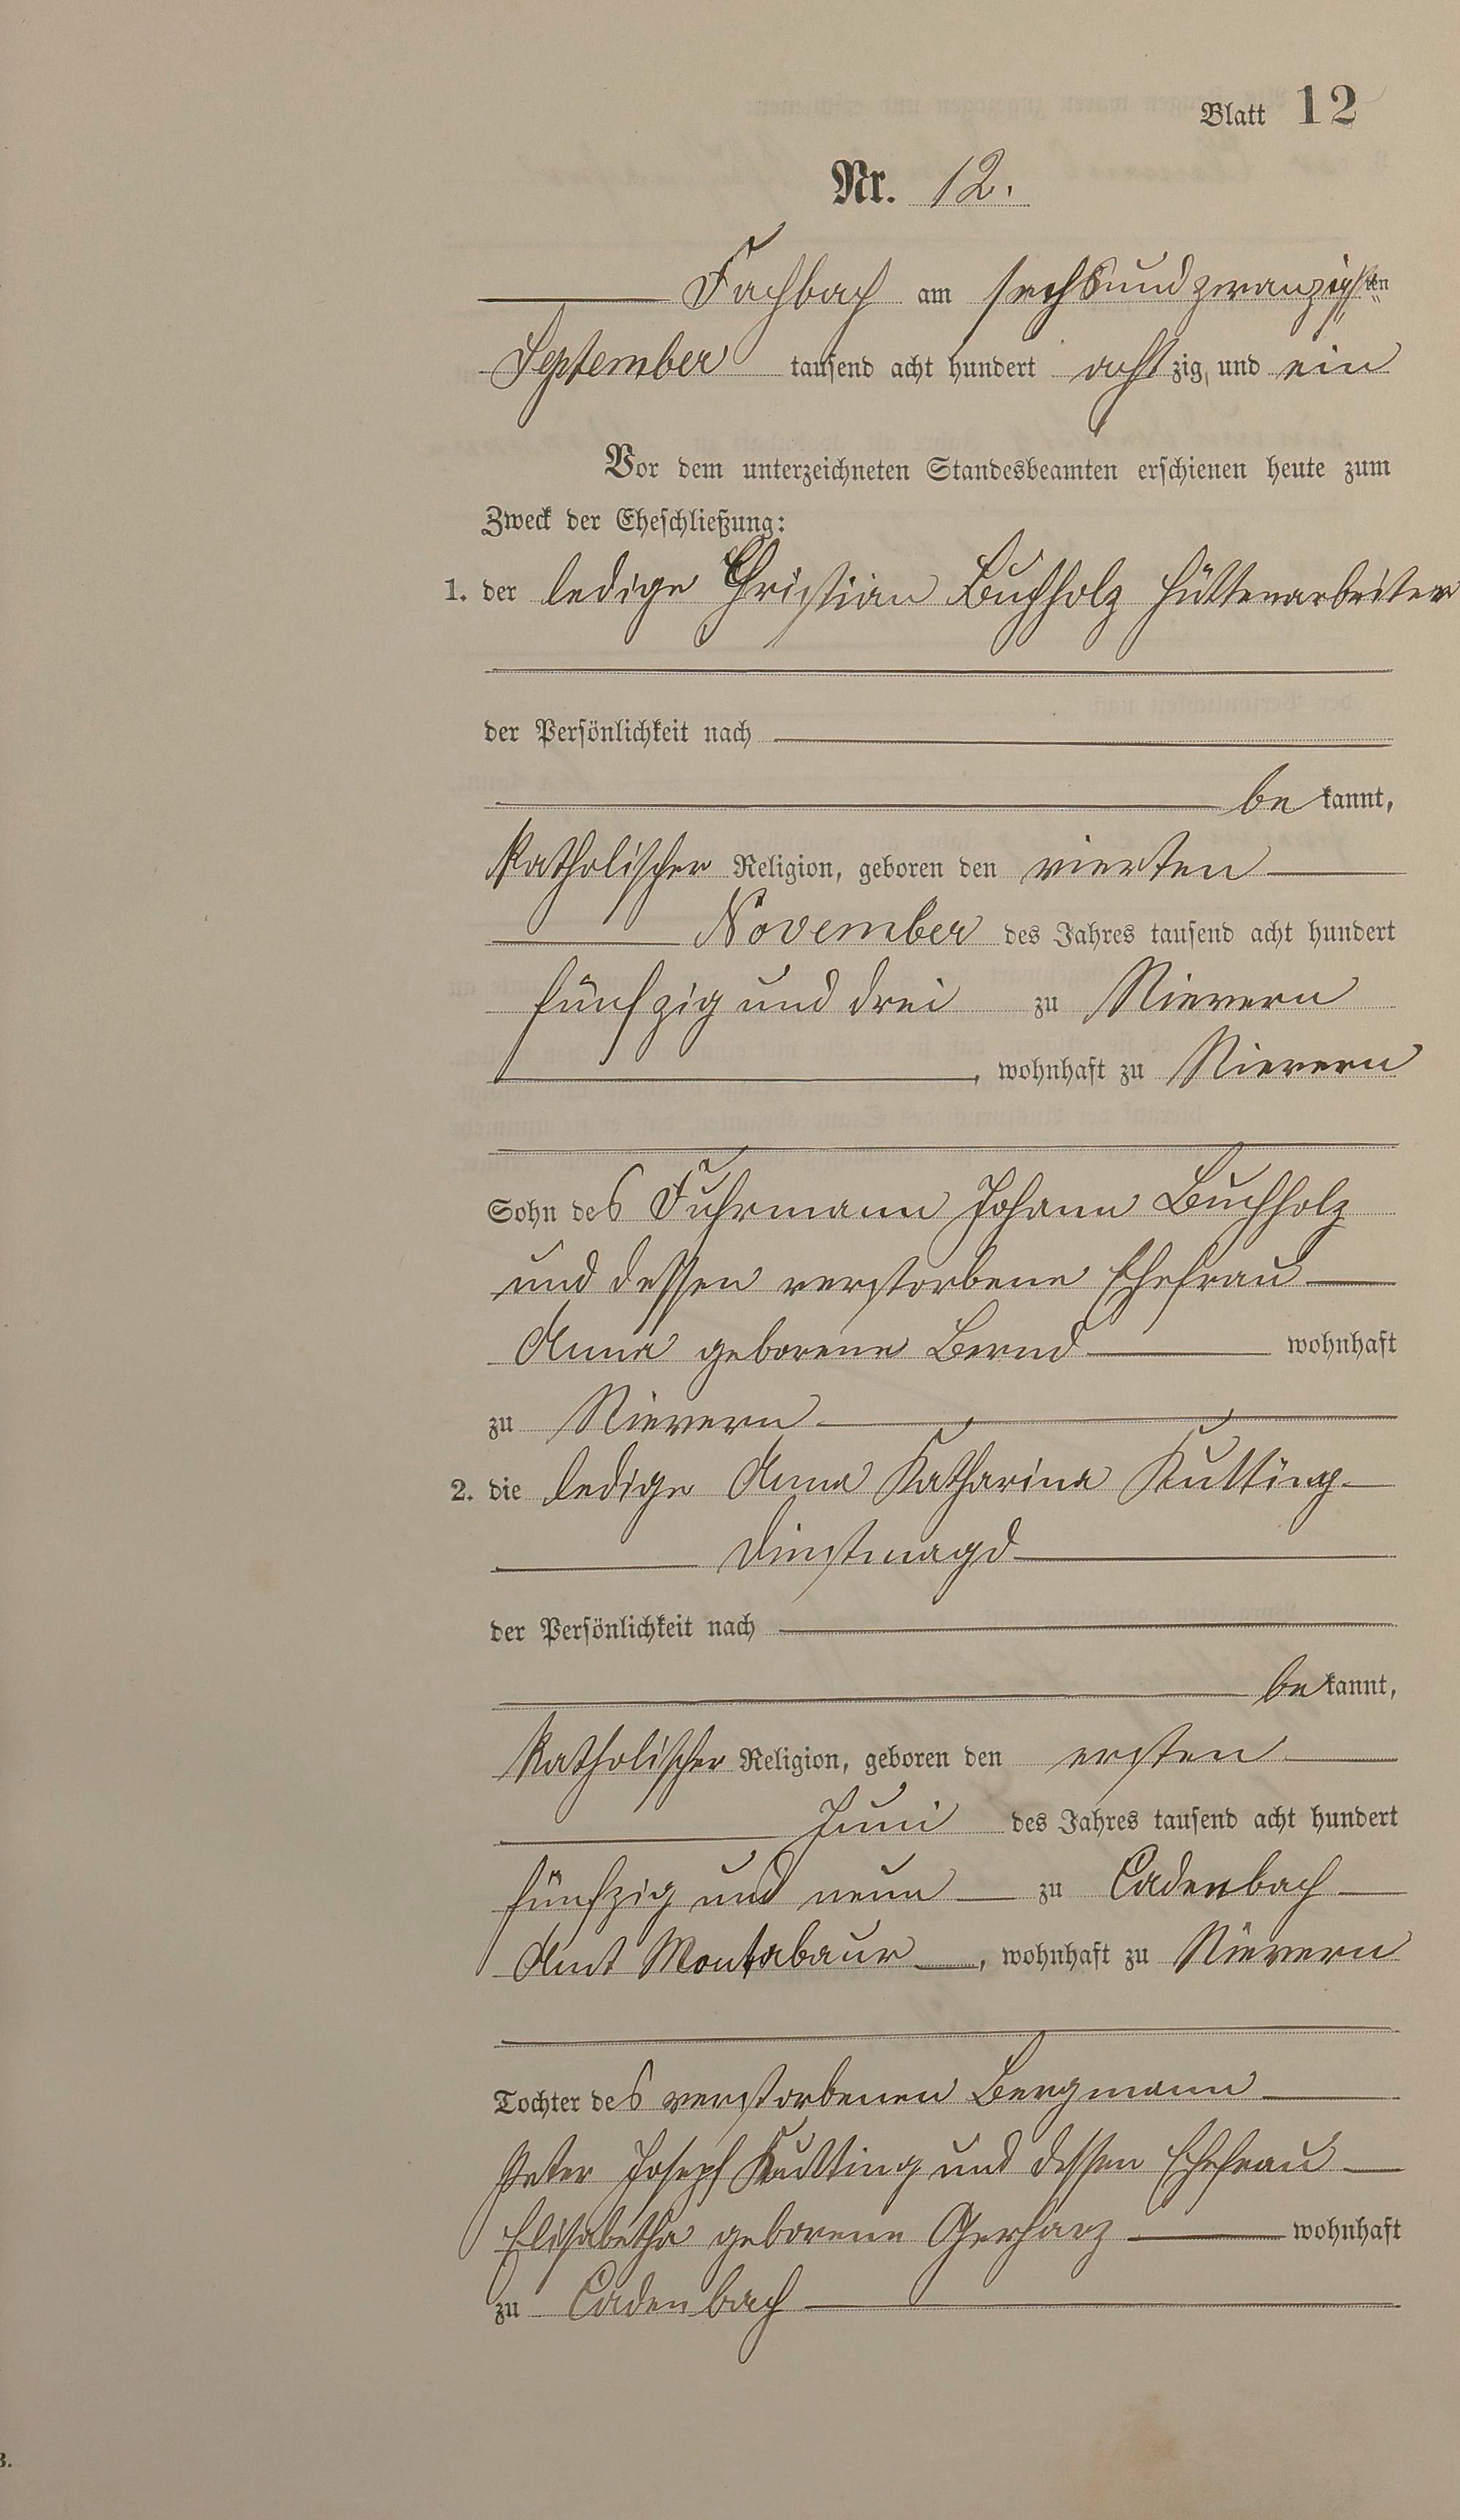 Blatt 12
Nr. 12.
Fachbach am sechsundzwanzigsten
September tausend acht hundert achtzig, und ein
Vor dem unterzeichneten Standesbeamten erschienen heute zum
Zweck der Eheschließung:
1. der ledige Christian Buchholz Hüttenarbeiter
der Persönlichkeit nach
bekannt,
katholischer Religion, geboren den vierten
November des Jahres tausend acht hundert
fünfzig und drei zu Nievern
, wohnhaft zu Nievern
Sohn des Fuhrmann Johann Buchholz
und dessen verstorbene Ehefrau
Anna geborene Bernd wohnhaft
zu Nievern
2. die ledige Anna Katharina Kutting
Dinstmagd
der Persönlichkeit nach
bekannt,
katholischer Religion, geboren den ersten
Juni des Jahres tausend acht hundert
fünfzig und neun zu Cadenbach
Amt Montabaur, wohnhaft zu Nievern
Tochter des verstorbenen Bergmann
Peter Joseph Kutting und dessen Ehefrau
Elisabetha geborene Gerharz wohnhaft
zu Cadenbach